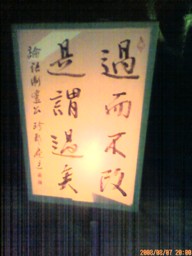 過而不改
是謂過矣
論語衛靈公
2008/08/07 20:00